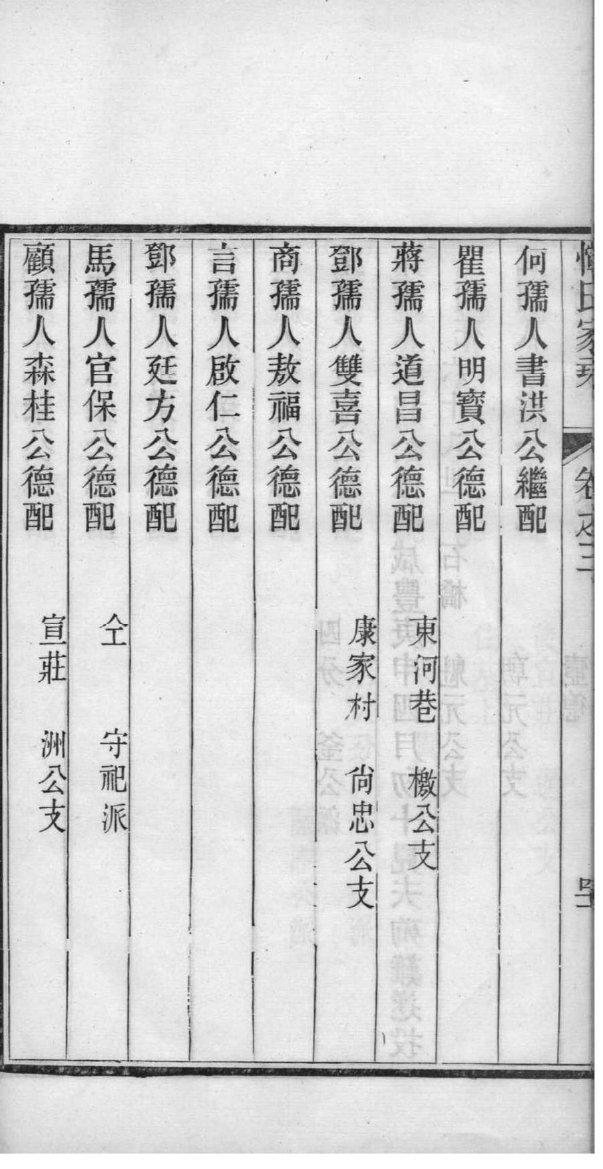 惲氏家乘　卷之三
何孺人書洪公繼配
瞿孺人明寶公德配
蔣孺人道昌公德配　東河巷　檄公支
鄧孺人雙喜公德配　康家村　尙忠公支
商孺人敖福公德配
言孺人啟仁公德配
鄧孺人廷方公德配
馬孺人官保公德配　仝　守祀派
顧孺人森桂公德配　宣莊　洲公支